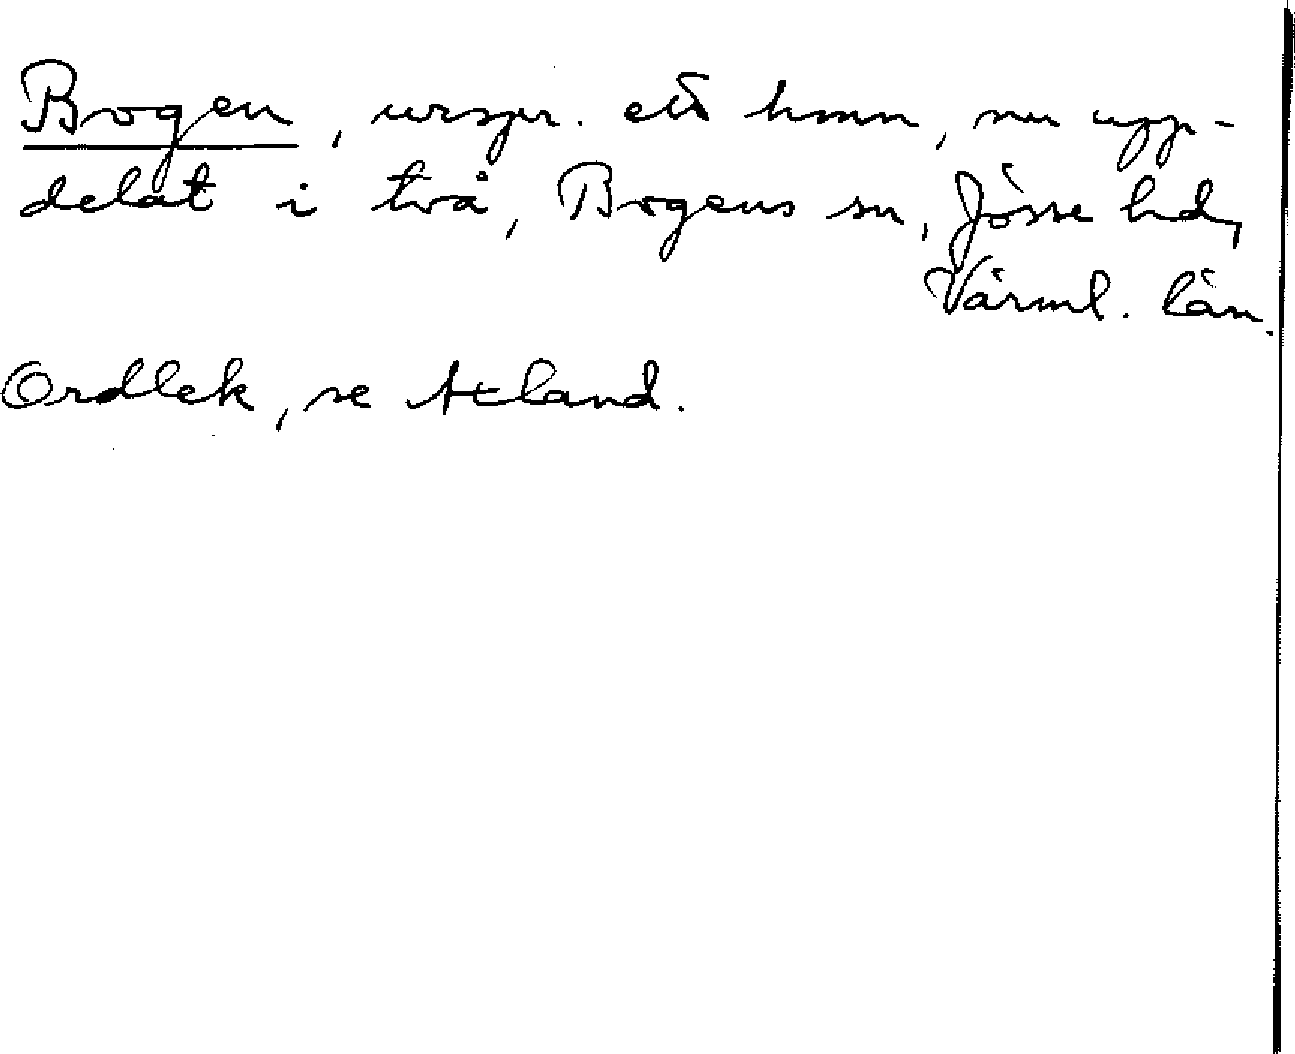 Bogen, urspr. ett hmn, nu upp-
delat i två, Bogens sn, Jösse hd,
Värml. län.
Ordlek, se Axland.